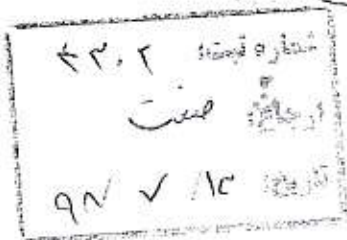 شماره ثبت: ۴۳۰۲
صنعت
تاریخ: ۹۸/۷/۱۳